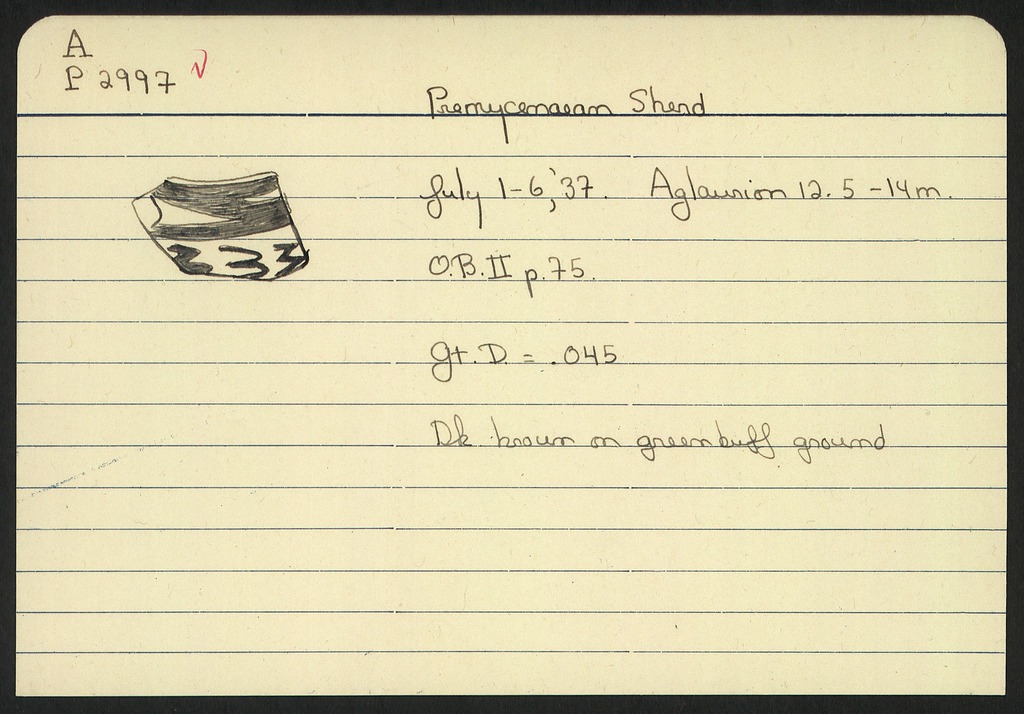 A
P 2997
Premycenaean Sherd
July 1-6, '37. Aglaurion 12.5 - 14 m.
O.B. II p. 75.
Gt. D. = .045
Dk brown on greenbuff ground